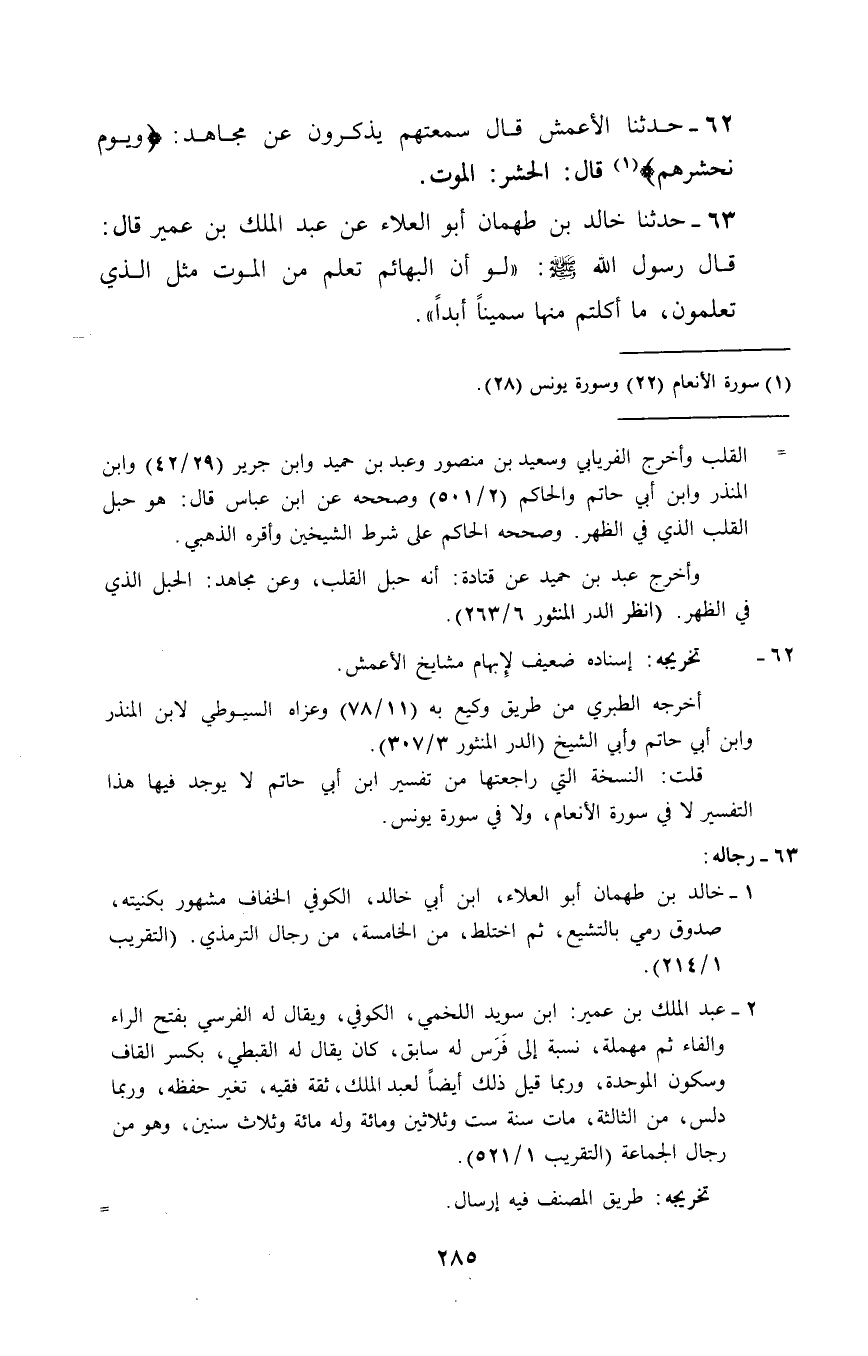 ٦٢ - حدثنا الأعمش قال سمعتهم يذكرون عن مجاهد: ﴿ويوم
نحشرهم﴾(١) قال: الحشر: الموت.
٦٣ - حدثنا خالد بن طهمان أبو العلاء عن عبد الملك بن عمير قال:
قال رسول الله ﷺ: «لو أن البهائم تعلم من الموت مثل الذي
تعلمون، ما أكلتم منها سميناً أبداً».
(١) سورة الأنعام (٢٢) وسورة يونس (٢٨).
= القلب وأخرج الفريابي وسعيد بن منصور وعبد بن حميد وابن جرير (٤٢/٢٩) وابن
المنذر وابن أبي حاتم والحاكم (٥٠١/٢) وصححه عن ابن عباس قال: هو حبل
القلب الذي في الظهر. وصححه الحاكم على شرط الشيخين وأقره الذهبي.
وأخرج عبد بن حميد عن قتادة: أنه حبل القلب، وعن مجاهد: الحبل الذي
في الظهر. (انظر الدر المنثور ٢٦٣/٦).
٦٢ - تخريجه: إسناده ضعيف لإبهام مشايخ الأعمش.
أخرجه الطبري من طريق وكيع به (٧٨/١١) وعزاه السيوطي لابن المنذر
وابن أبي حاتم وأبي الشيخ (الدر المنثور ٣٠٧/٣).
قلت: النسخة التي راجعتها من تفسير ابن أبي حاتم لا يوجد فيها هذا
التفسير لا في سورة الأنعام، ولا في سورة يونس.
٦٣ - رجاله:
١ - خالد بن طهمان أبو العلاء، ابن أبي خالد، الكوفي الخفاف مشهور بكنيته،
صدوق رمي بالتشيع، ثم اختلط، من الخامسة، من رجال الترمذي. (التقريب
٢١٤/١).
٢ - عبد الملك بن عمير: ابن سويد اللخمي، الكوفي، ويقال له الفرسي بفتح الراء
والفاء ثم مهملة، نسبة إلى فَرَس له سابق، كان يقال له القبطي، بكسر القاف
وسكون الموحدة، وربما قيل ذلك أيضاً لعبد الملك، ثقة فقيه، تغير حفظه، وربما
دلس، من الثالثة، مات سنة ست وثلاثين ومائة وله مائة وثلاث سنين، وهو من
رجال الجماعة (التقريب ٥٢١/١).
تخريجه: طريق المصنف فيه إرسال. =
٢٨٥